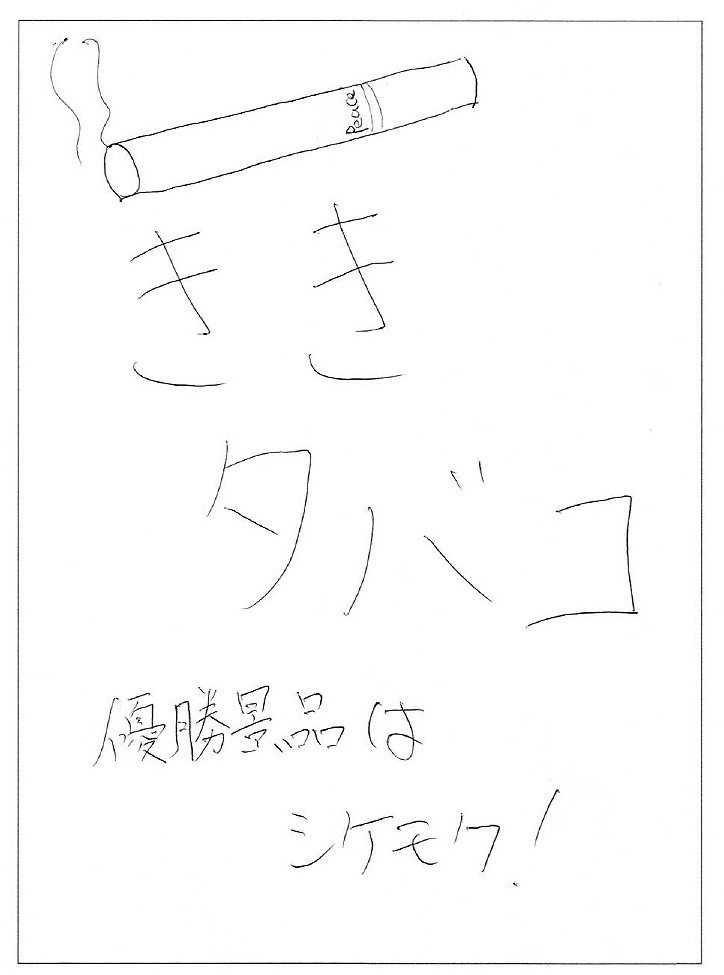 Peace
きき
タバコ
優勝景品は
シケモク!